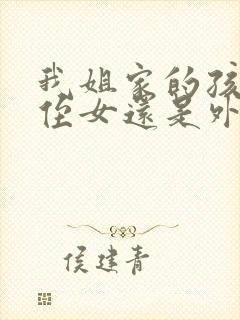 我姐家的孩
侄女還是外
侯建青